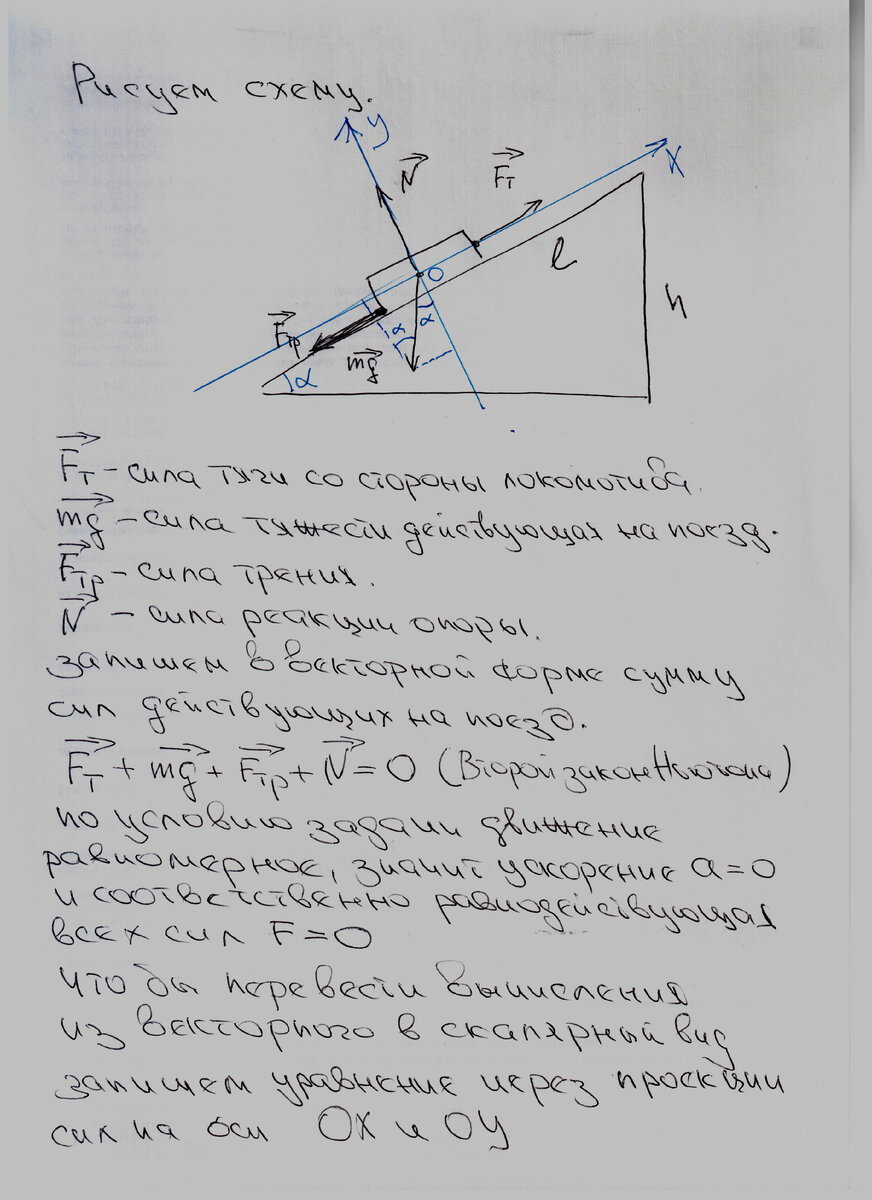 Рисуем схему.
y
N
Fт
X
O
l
h
Fтр
α
α
mg
α
Fт – сила тяги со стороны локомотива.
mg – сила тяжести действующая на поезд.
Fтр – сила трения.
N – сила реакции опоры.
запишем в векторной форме сумму
сил действующих на поезд.
Fт + mg + Fтр + N = 0 (Второй закон Ньютона)
по условию задачи движение
равномерное, значит ускорение a = 0
и соответственно равнодействующая
всех сил F = 0
что бы перевести вычисления
из векторного в скалярный вид
запишем уравнение через проекции
сил на оси OX и OY